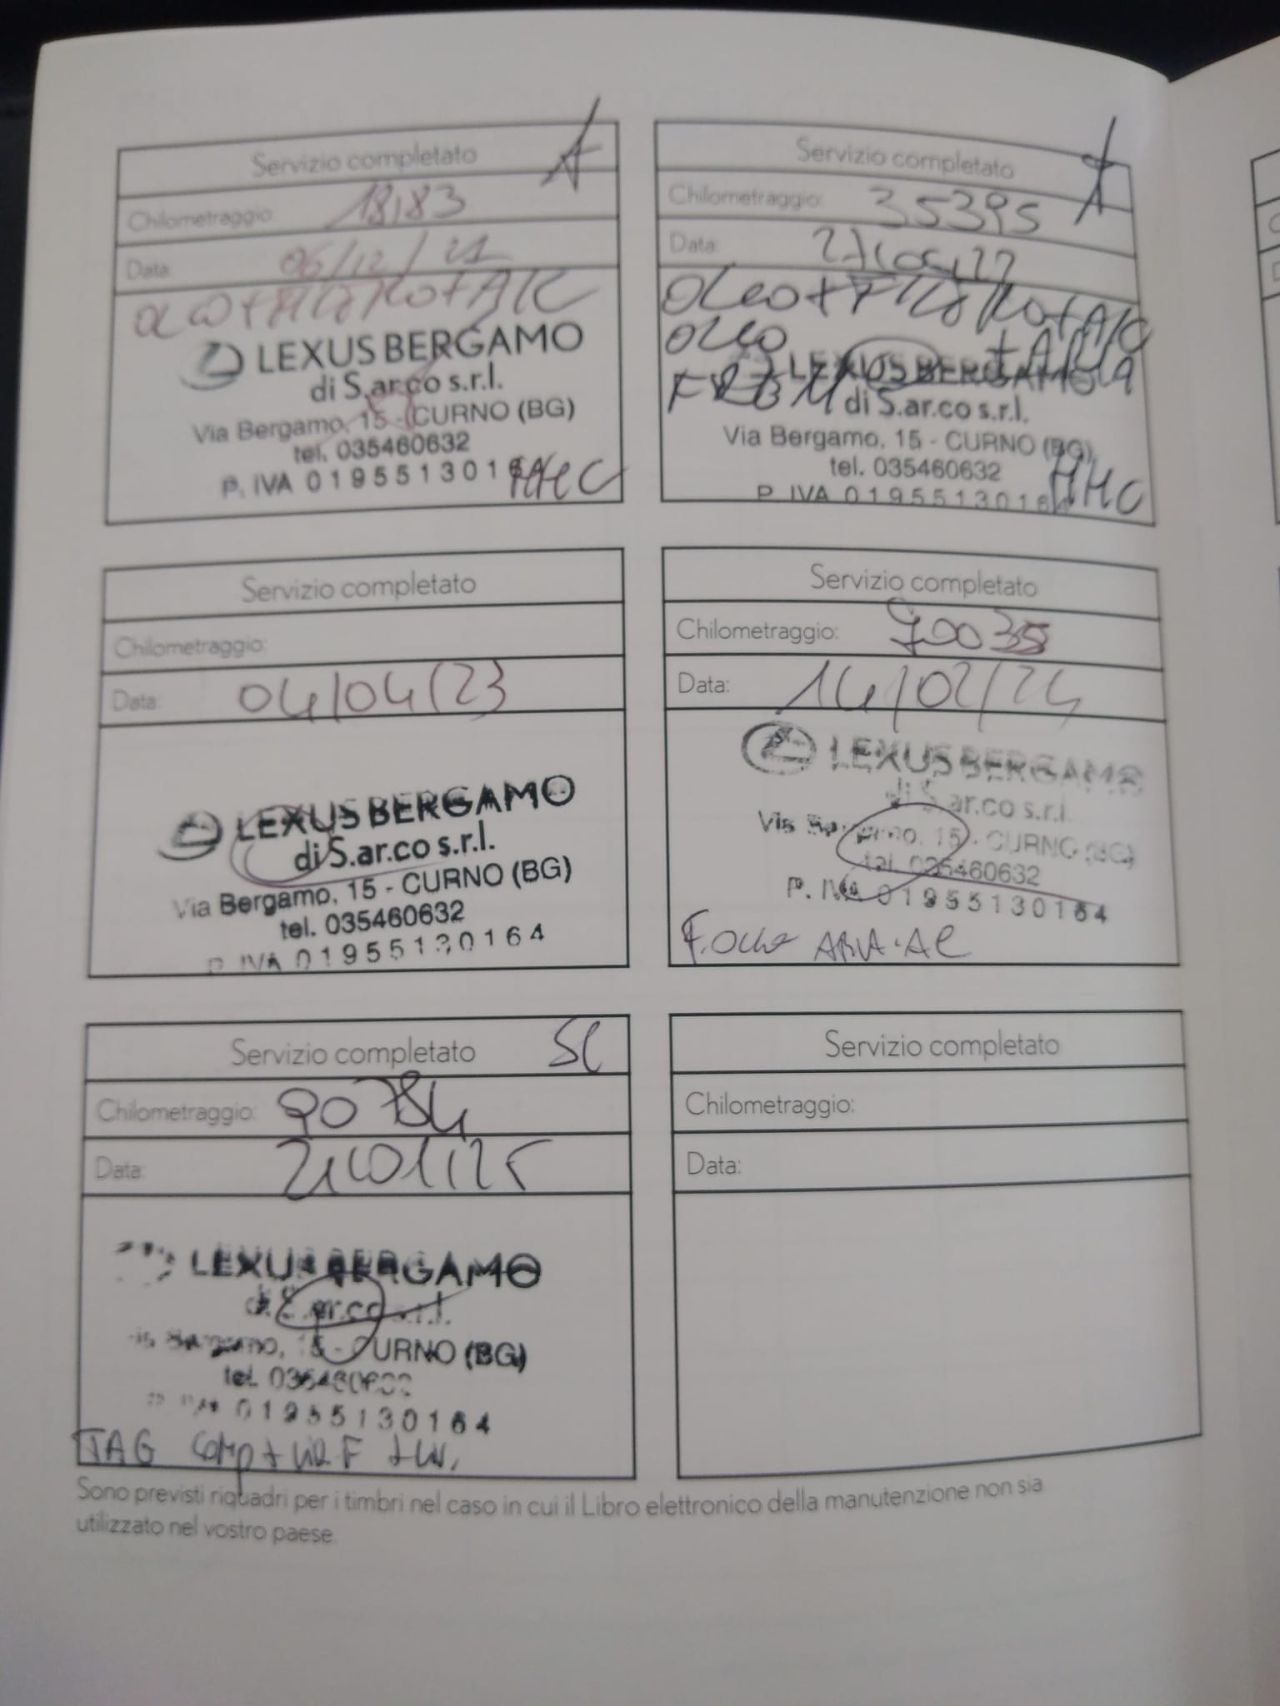 Servizio completato
Chilometraggio: 18183
Data: 06/12/21
LEXUS BERGAMO
di S.ar.co s.r.l.
Via Bergamo, 15 - CURNO (BG)
tel. 035460632
P. IVA 0195513016
HHC
Servizio completato
Chilometraggio: 35395
Data:
Oleo + Filtro + A/C
oleo
LEXUS BERGAMO
di S.ar.co s.r.l.
Via Bergamo, 15 - CURNO (BG)
tel. 035460632
P. IVA 0195513016
HHC
Servizio completato
Chilometraggio:
Data: 04/04/23
LEXUS BERGAMO
di S.ar.co s.r.l.
Via Bergamo, 15 - CURNO (BG)
tel. 035460632
P. IVA 01955130164
Servizio completato
Chilometraggio: 70035
Data: 14/02/24
LEXUS BERGAMO
di S.ar.co s.r.l.
Via Bergamo, 15 - CURNO (BG)
tel. 035460632
P. IVA 01955130164
ARIA AC
Servizio completato
Chilometraggio: 90784
Data:
LEXUS BERGAMO
di S.ar.co s.r.l.
Via Bergamo, 15 - CURNO (BG)
tel. 035460632
01955130164
TAG
Servizio completato
Chilometraggio:
Data:
Sono previsti riquadri per i timbri nel caso in cui il Libro elettronico della manutenzione non sia
utilizzato nel vostro paese.